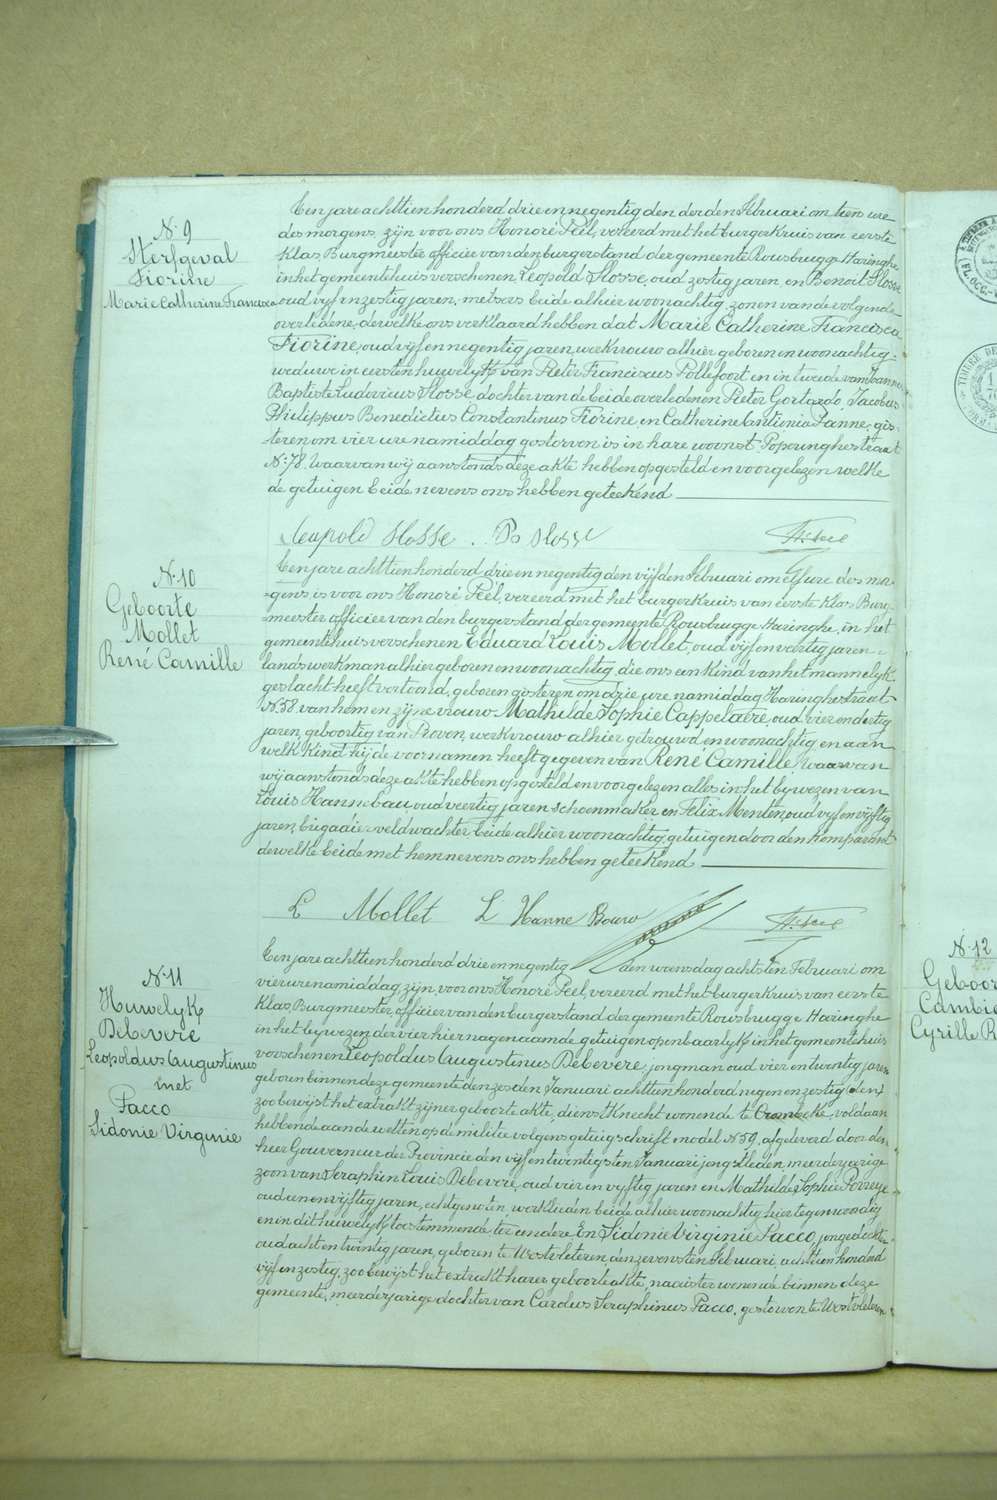 N. 9
Sterfgeval
Fiorine
Marie Catherine Francisca
Een jare achttien honderd drie en negentig den derden Februari om tien ure
des morgens, zijn voor ons Honoré Peel, vereerd met het burgerkruis van eerste
klas, Burgmeester officier van den burgerstand der gemeente Rousbrugge Haringhe
in het gemeentehuis verschenen Leopold Slosse, oud zestig jaren, en Benoit Slosse
oud vijf en zestig jaren, metsers beide alhier woonachtig, zonen van de volgende
overledene, dewelke ons verklaard hebben dat Marie Catherine Francisca
Fiorine, oud vijf en negentig jaren, werkvrouw alhier geboren en woonachtig,
weduwe in eersten huwelijk van Pieter Franciscus Pollefoort en in tweede van Joannes
Baptiste Ludovicus Slosse dochter van de beide overledenen Pieter Gortardo, Jacobus
Philippus Benedictus Constantinus Fiorine, en Catherine Antionia Panne, gis-
teren om vier ure namiddag gestorven is in hare woonst Poperinghestraat
N. 78, Waarvan wij aanstonds deze akte hebben opgesteld en voorgelezen welke
de getuigen beide nevens ons hebben geteekend
Leopold Slosse . Bo Slosse H. Peel
N. 10
Geboorte
Mollet
René Camille
Een jare achttien honderd drie en negentig den vijfden Februari om elf ure des mor-
gens, is voor ons Honoré Peel, vereerd met het burgerkruis van eerste klas Burg-
meester officier van den burgerstand der gemeente Rousbrugge Haringhe, in het
gemeentehuis verschenen Eduard Louis Mollet, oud vijf en veertig jaren
landswerkman alhier geboren en woonachtig, die ons een kind van het mannelijk
geslacht heeft vertoond, geboren gisteren om drie ure namiddag Haringhestraat
N. 58 van hem en zijne vrouw Mathilde Sophie Cappelaere, oud vier en dertig
jaren, geboortig van Proven, werkvrouw alhier getrouwd en woonachtig en aan
welk kind hij de voornamen heeft gegeven van René Camille, Waarvan
wij aanstonds deze akte hebben opgesteld en voorgelezen alles in het bijwezen van
Louis Hannebau oud veertig jaren schoenmaker en Felix Menten, oud vijf en vijftig
jaren, brigadier veldwachter beide alhier woonachtig, getuigen door den komparant
dewelke beide met hem nevens ons hebben geteekend
L Mollet L Hanne Bouw H. Peel
N. 11
Huwelijk
Debevere
Leopoldus Augustinus
met
Pacco
Sidonie Virginie
Een jare achttien honderd drie en negentig den woensdag achtsten Februari om
vier ure namiddag zijn voor ons Honoré Peel, vereerd met het burgerkruis van eerste
klas, Burgmeester, officier van den burgerstand der gemeente Rousbrugge Haringhe
in het bijwezen der vier hier nagenaamde getuigen openbaarlijk in het gemeentehuis
voorschenen Leopoldus Augustinus Debevere, jongman oud vier en twintig jaren
geboren binnen deze gemeente den zesden Januari achttien honderd negen en zestig,
zoo bewijst het extrakt zijner geboorte akte, dienstknecht wonende te Crombeke, voldaan
hebbende aan de wetten op de militie volgens getuigschrift model N. 59, afgeleverd door den
heer Gouverneur der Provincie den vijf en twintigsten Januari jongstleden, meerderjarige
zoon van Seraphin Louis Debevere, oud vier en vijftig jaren en Mathilde Sophie Porreye
oud een en vijftig jaren, echtgenoten, werklieden beide alhier woonachtig hier tegenwoordig
en in dit huwelijk toestemmende ter andere En Sidonie Virginie Pacco, jongedochter
oud acht en twintig jaren, geboren te Westvleteren, den zevensten Februari, achttien honderd
vijf en zestig, zoo bewijst het extrakt harer geboorte akte, naaister wonende binnen deze
gemeente, meerderjarige dochter van Carolus Seraphinus Pacco, gestorven te Westvleteren
N. 12
Cyrille